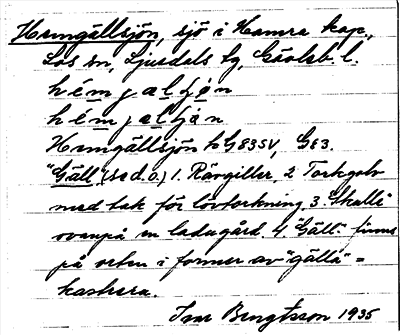 Hemgällsjön, sjö i Hamra kap.,
Los sn, Ljusdals tg, Gävleb. l.
hémjælʃọn
hémjælʃọn
Hemgällsjön h G83SV, G83.
"Gäll" (se d.o.) 1. Rävgiller, 2 Torkgolv
med tak för lövtorkning 3 Skulle
ovanpå en ladugård. 4 "Gäll" finns
på orten i former av "gälla" =
kastrera.
Ivar Bengtsson 1935